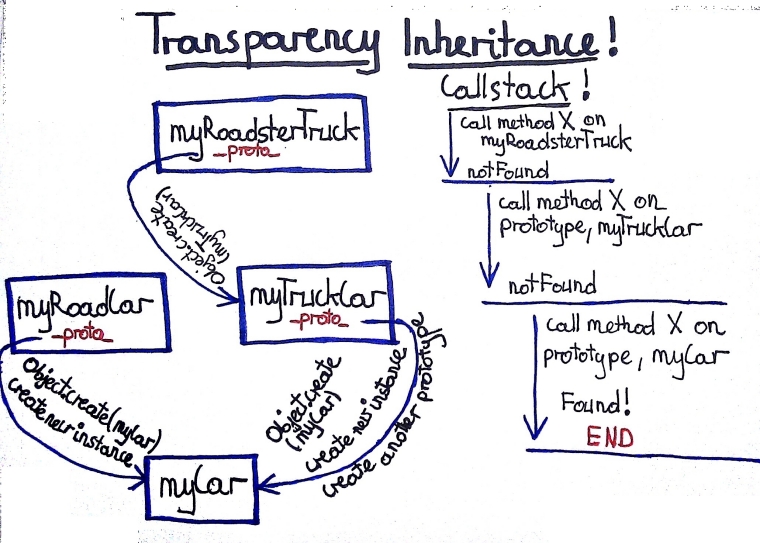 Transparency Inheritance!
myRoadsterTruck
_proto_
Object.create
(myTruckCar)
myRoadCar
_proto_
myTruckCar
_proto_
Object.create(myCar)
create new instance
Object.create
(myCar)
create new instance
create another prototype
myCar
Callstack!
call method X on
myRoadsterTruck
notFound
call method X on
prototype, myTruckCar
notFound
call method X on
prototype, myCar
Found!
END